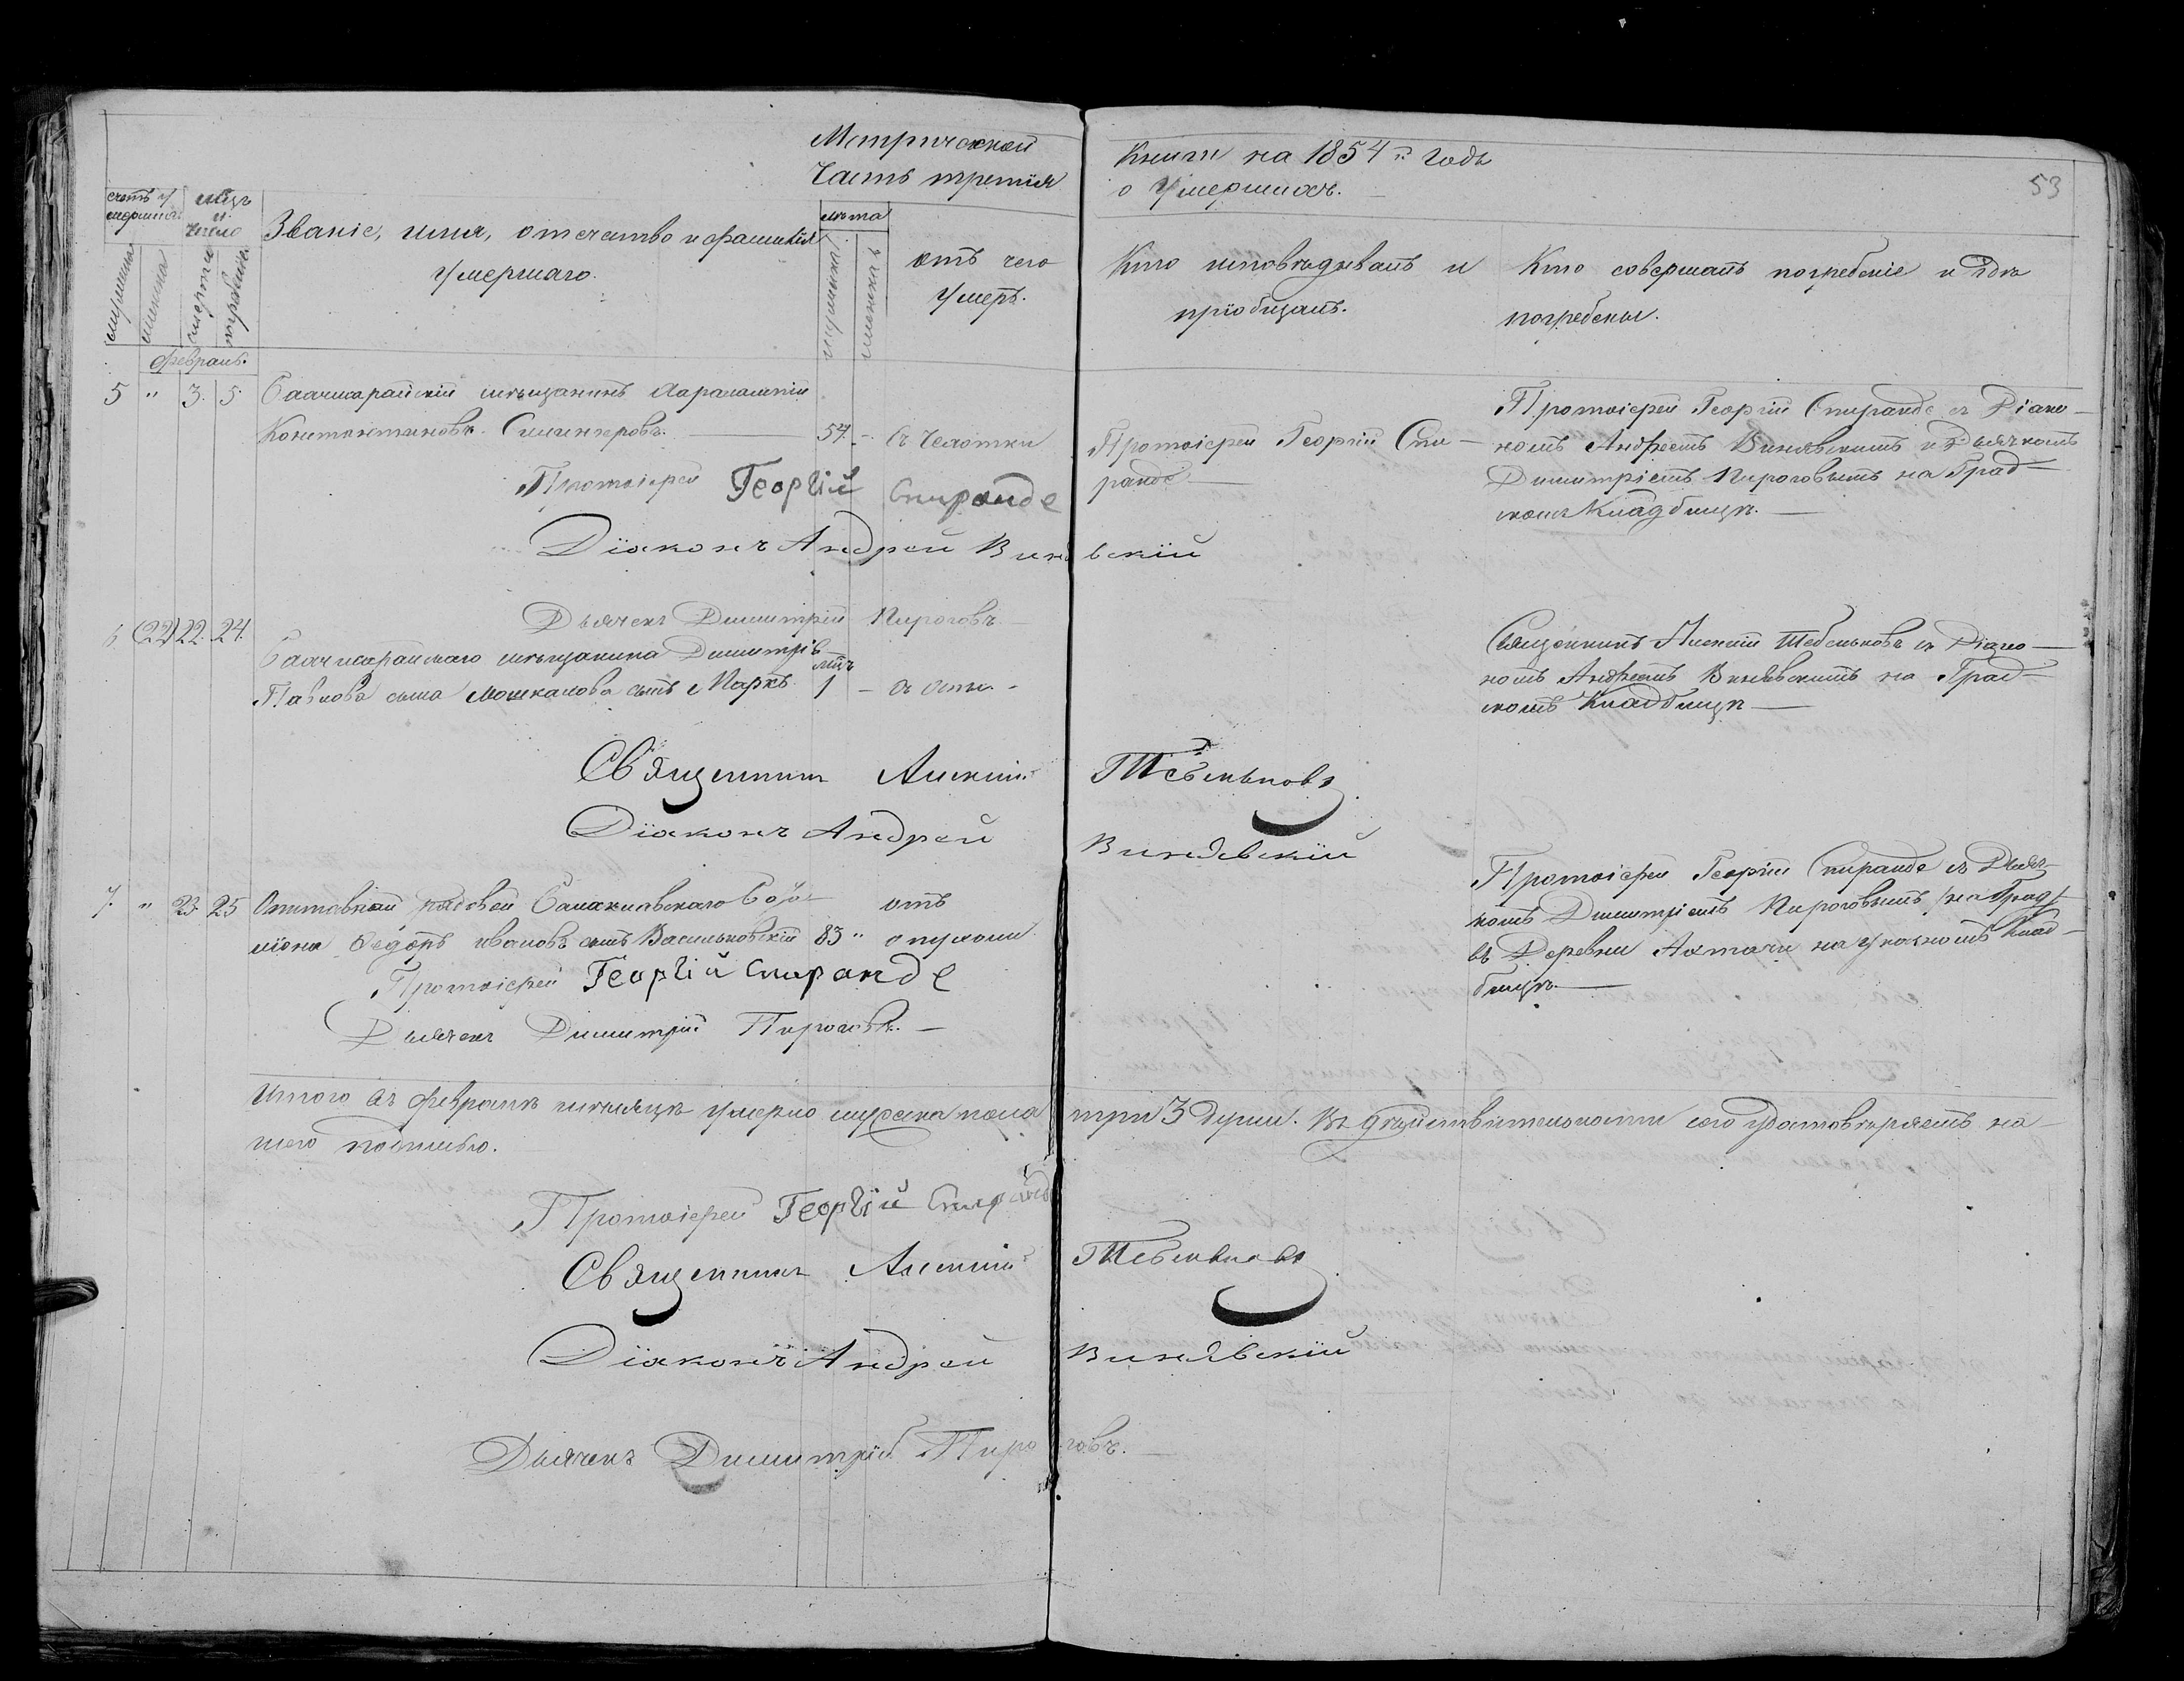 Метрической
Часть третія
Книги на 1854 й годъ
о Умершихъ.
53
счетъ у
мершихъ
мужеска
женска
мѣц.
и
число
смерти
погребенія
Званіе, имя, отечество и фамилія
Умершаго.
лѣта
мужеска
женска
отъ чего
Умеръ.
Кто исповѣдывалъ и
пріобщалъ.
Кто совершалъ погребеніе и гдѣ
погребены.
Февраль.
5 " 3. 5.
Бахчисарайскій мѣщанинъ Харалампій
Константиновъ
54 - Съ Чахотки
Протоіерей Георгій Спи-
ранде —
Протоіерей Георгій Спиранде съ Діако-
номъ Андреемъ Винявскимъ и Дьячкомъ
Димитріемъ Пироговымъ на Град-
скомъ Кладбищѣ. —
Протоіерей Георгій Спиранде
Діаконъ Андрей Винявскій
Дьячекъ Димитрій Пироговъ. —
6 (22) 22. 24.
Бахчисарайскаго мѣщанина Димитрія
Павлова сына сынъ Маркъ. мѣц. 1 - съ оспы. -
Священникъ Алексій Тебеньковъ съ Діако-
номъ Андреемъ Винявскимъ на Град-
скомъ Кладбищѣ —
Священникъ Алексій Тебеньковъ
Діаконъ Андрей Винявскій
7. " 23. 25
Отставной рядовой Балаклавскаго Бата-
ліона Ѳедоръ Ивановъ сынъ Васильковскій 83 " отъ
опухоли
Протоіерей Георгій Спиранде съ Дьяч-
комъ Димитріемъ Пироговымъ /на Град/
въ Деревни Ахтачи на кладбищѣ. —
Протоіерей Георгій Спиранде
Дьячекъ Димитрій Пироговъ. —
Итого въ Февралѣ мѣсяцѣ умерло мужеска пола три 3 души. Въ дѣйствительности сего удостовѣряемъ на-
шею подписью.
Протоіерей Георгій Спиранде
Священникъ Алексій Тебеньковъ
Діаконъ Андрей Винявскій
Дьячекъ Димитрій Пироговъ. —